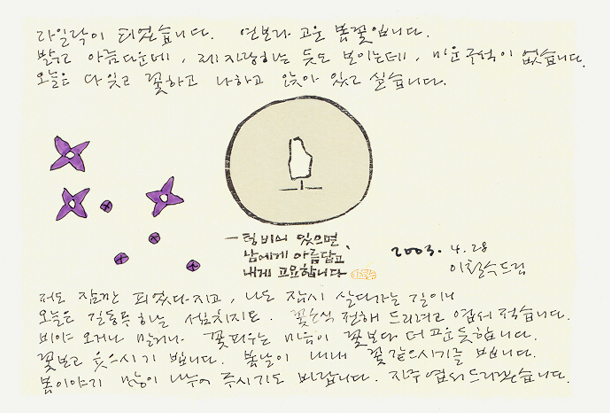 라일락이 피었습니다. 연보라 고운 봄꽃입니다.
밝고 아름다운데, 제 자랑하는 듯도 보이는데, 미운 구석이 없습니다.
오늘은 다 잊고 꽃하고 나하고 앉아 있고 싶습니다.
— 텅 비어 있으면,
남에게 아름답고
내게 고요합니다
2003. 4. 28
이철수 드림
저도 잠깐 피었다 지고, 나도 잠시 살다 가는 길이니
오늘은 길동무하는 셈 치지요. 꽃소식 전해 드리려고 엽서 적습니다.
비야 오거나 말거나. 꽃 피우는 마음이 꽃보다 더 고운 듯합니다.
꽃보고 웃으시기 빕니다. 봄날이 내내 꽃같으시기를 빕니다.
봄이야기 많이 나누어 주시기도 바랍니다. 자주 엽서 드리겠습니다.